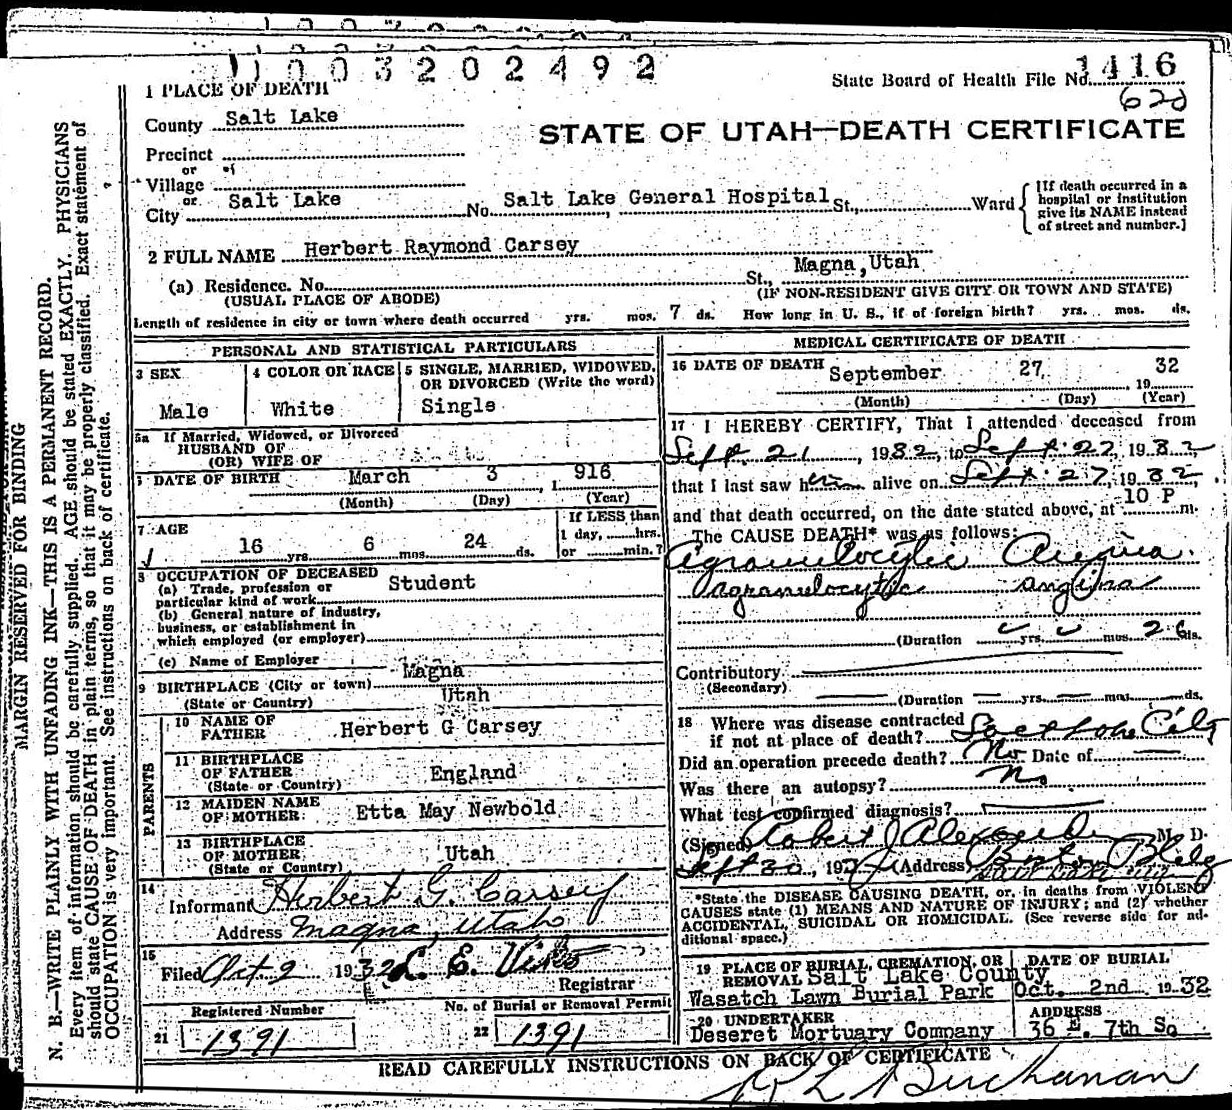 1003202492
State Board of Health File No. 1416
620
1 PLACE OF DEATH
County Salt Lake
STATE OF UTAH—DEATH CERTIFICATE
Precinct
or
Village
or
City Salt Lake No. Salt Lake General Hospital St., Ward
[If death occurred in a hospital or institution give its NAME instead of street and number.]
2 FULL NAME Herbert Raymond Carsey
(a) Residence. No. St., Magna, Utah
(USUAL PLACE OF ABODE) (IF NON-RESIDENT GIVE CITY OR TOWN AND STATE)
Length of residence in city or town where death occurred yrs. mos. 7 ds. How long in U. S., if of foreign birth? yrs. mos. ds.
PERSONAL AND STATISTICAL PARTICULARS
3 SEX
Male
4 COLOR OR RACE
White
5 SINGLE, MARRIED, WIDOWED, OR DIVORCED (Write the word)
Single
5a If Married, Widowed, or Divorced
HUSBAND OF
(OR) WIFE OF
DATE OF BIRTH March 3, 1916
(Month) (Day) (Year)
7 AGE
16 yrs. 6 mos. 24 ds.
If LESS than
1 day, hrs.
or min.?
8 OCCUPATION OF DECEASED
(a) Trade, profession or
particular kind of work Student
(b) General nature of industry,
business, or establishment in
which employed (or employer)
(c) Name of Employer
9 BIRTHPLACE (City or town) Magna
(State or Country) Utah
PARENTS
10 NAME OF FATHER Herbert G Carsey
11 BIRTHPLACE OF FATHER (State or Country) England
12 MAIDEN NAME OF MOTHER Etta May Newbold
13 BIRTHPLACE OF MOTHER (State or Country) Utah
14
Informant Herbert G. Carsey
Address Magna, Utah
15
Filed Oct 2 1932 L. E.
Registrar
Registered Number
21 1391
No. of Burial or Removal Permit
22 1391
MEDICAL CERTIFICATE OF DEATH
16 DATE OF DEATH September 27, 1932
(Month) (Day) (Year)
17 I HEREBY CERTIFY, That I attended deceased from
Sept. 21, 1932, to Sept. 27, 1932,
that I last saw him alive on Sept. 27, 1932,
and that death occurred, on the date stated above, at 10 P m.
The CAUSE DEATH* was as follows:
Agranulocytic Angina
Agranulocytic angina
(Duration yrs. mos. 26 ds.
Contributory
(Secondary)
(Duration yrs. mos. ds.
18 Where was disease contracted
if not at place of death? Salt Lake City
Did an operation precede death? No Date of
Was there an autopsy? No
What test confirmed diagnosis?
(Signed) Robert J Alexander M. D.
Sept 30, 193 (Address) Boston Bldg
Salt Lake City
*State the DISEASE CAUSING DEATH, or, in deaths from VIOLENT
CAUSES state (1) MEANS AND NATURE OF INJURY; and (2) whether
ACCIDENTAL, SUICIDAL OR HOMICIDAL. (See reverse side for ad-
ditional space.)
19 PLACE OF BURIAL, CREMATION, OR REMOVAL Salt Lake County
Wasatch Lawn Burial Park
DATE OF BURIAL
Oct. 2nd 1932
20 UNDERTAKER
Deseret Mortuary Company
ADDRESS
36 E. 7th So
READ CAREFULLY INSTRUCTIONS ON BACK OF CERTIFICATE
Buchanan
MARGIN RESERVED FOR BINDING
N. B.—WRITE PLAINLY WITH UNFADING INK—THIS IS A PERMANENT RECORD.
Every item of information should be carefully supplied. AGE should be stated EXACTLY. PHYSICIANS
should state CAUSE OF DEATH in plain terms, so that it may be properly classified. Exact statement of
OCCUPATION is very important. See instructions on back of certificate.